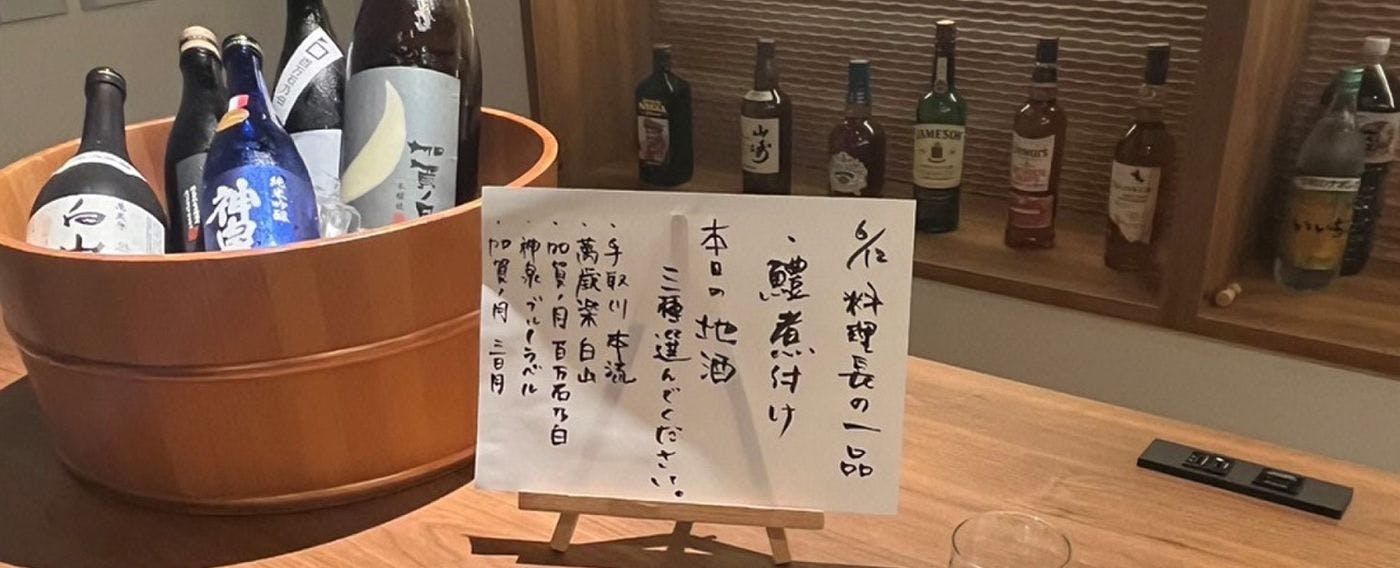 6/12 料理長の一品
・鱧煮付け
本日の地酒
三種選んでください。
・手取川 本流
・萬歳楽 白山
・加賀ノ月 百万石乃白
・神泉 ブルーラベル
・加賀ノ月 三日月
白
純米吟醸
神
加賀ノ月
NIKKA
山崎
JAMESON
いいちこ